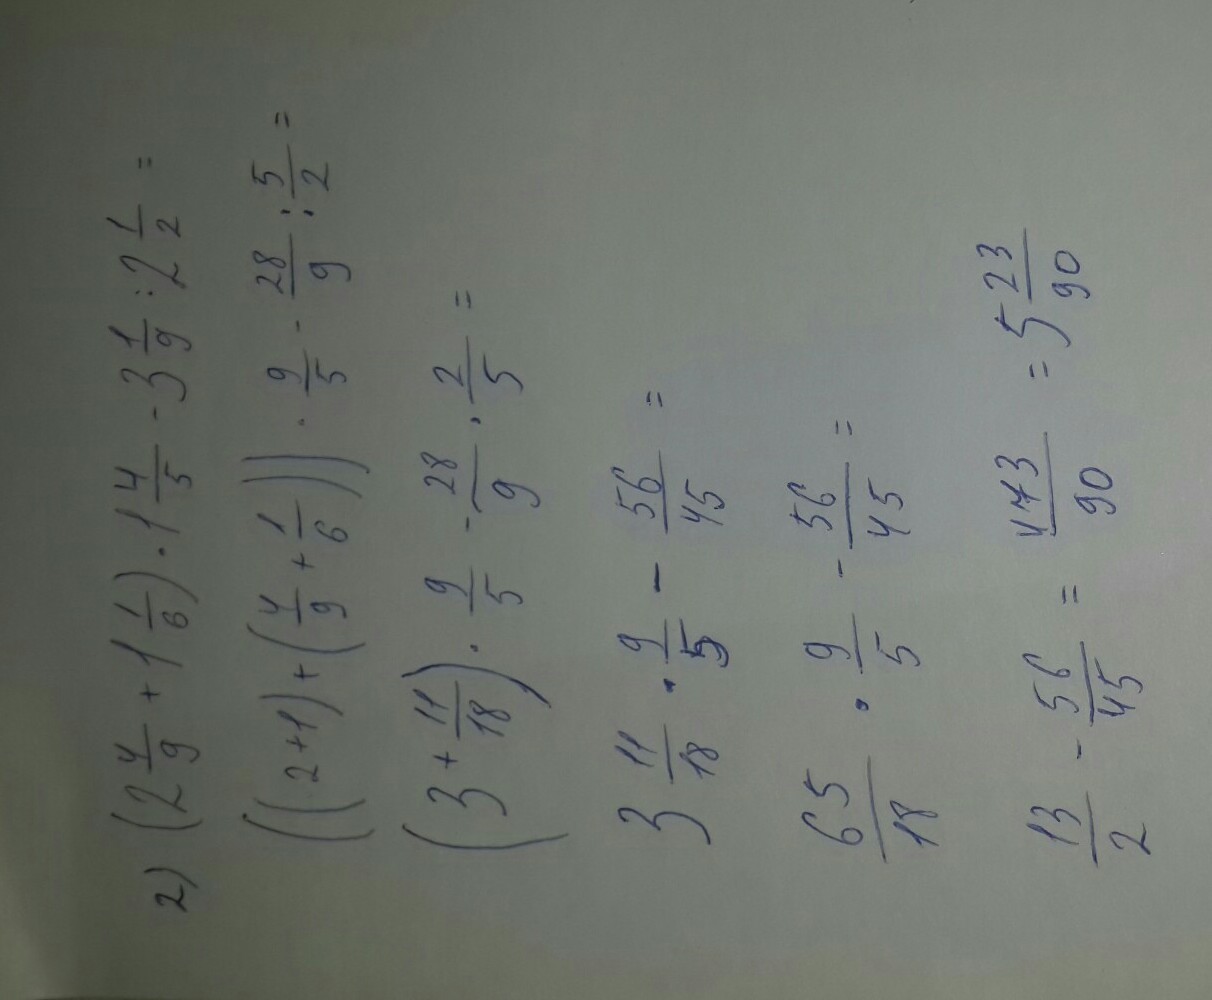 2) (2 4/9 + 1 1/6) · 1 4/5 - 3 1/9 : 2 1/2 =
((2+1) + (4/9 + 1/6)) · 9/5 - 28/9 : 5/2 =
(3 + 11/18) · 9/5 - 28/9 · 2/5 =
3 11/18 · 9/5 - 56/45 =
65/18 · 9/5 - 56/45 =
13/2 - 56/45 = 473/90 = 5 23/90